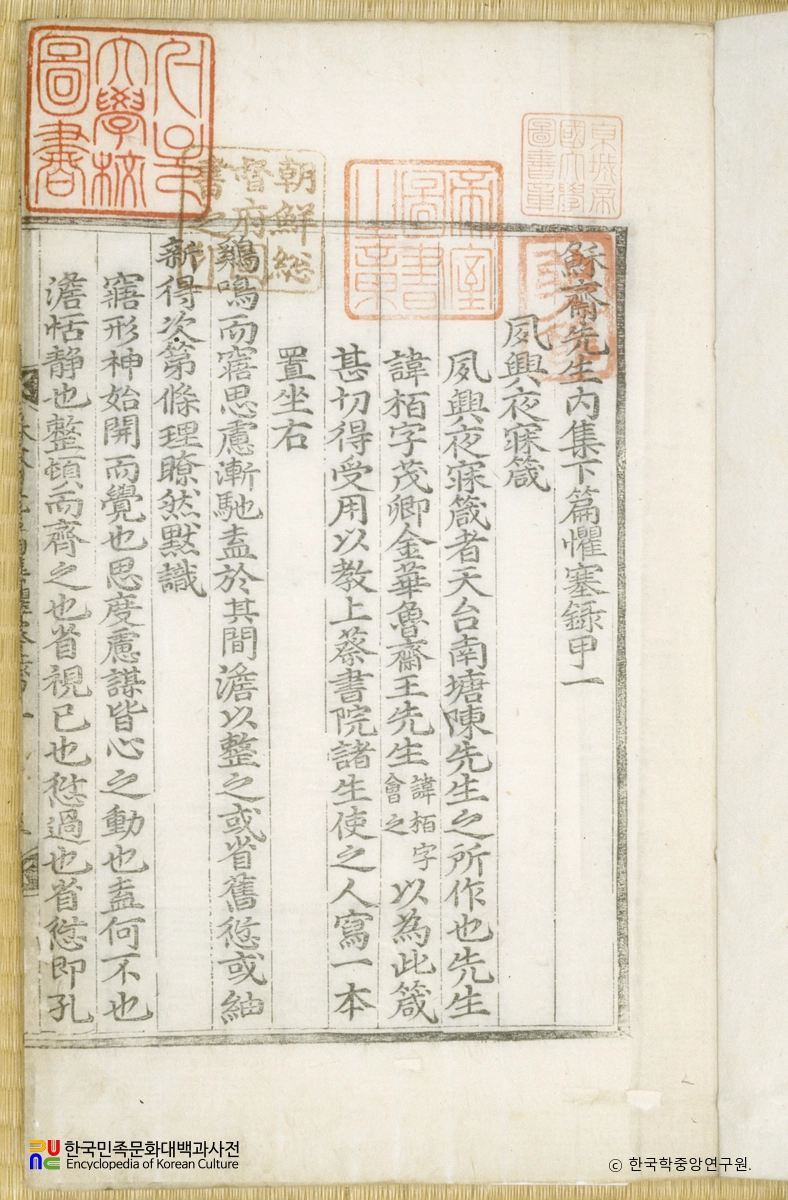 서울大學校圖書
朝鮮総督府圖書之印
帝室圖書之章
京城帝國大學圖書章
穌齋先生内集下篇懼塞録甲一
夙興夜寐箴
夙興夜寐箴者天台南塘陳先生之所作也先生
諱栢字茂卿金華魯齋王先生諱栢字會之以為此箴
甚切得受用以教上蔡書院諸生使之人寫一本
置坐右
鷄鳴而寤思慮漸馳盍於其間澹以整之或省舊愆或紬
新得次第條理瞭然黙識
寤形神始開而覺也思度慮謀皆心之動也盍何不也
澹恬静也整頓而齊之也省視已也愆過也省愆即孔
한국민족문화대백과사전
Encyclopedia of Korean Culture
© 한국학중앙연구원.